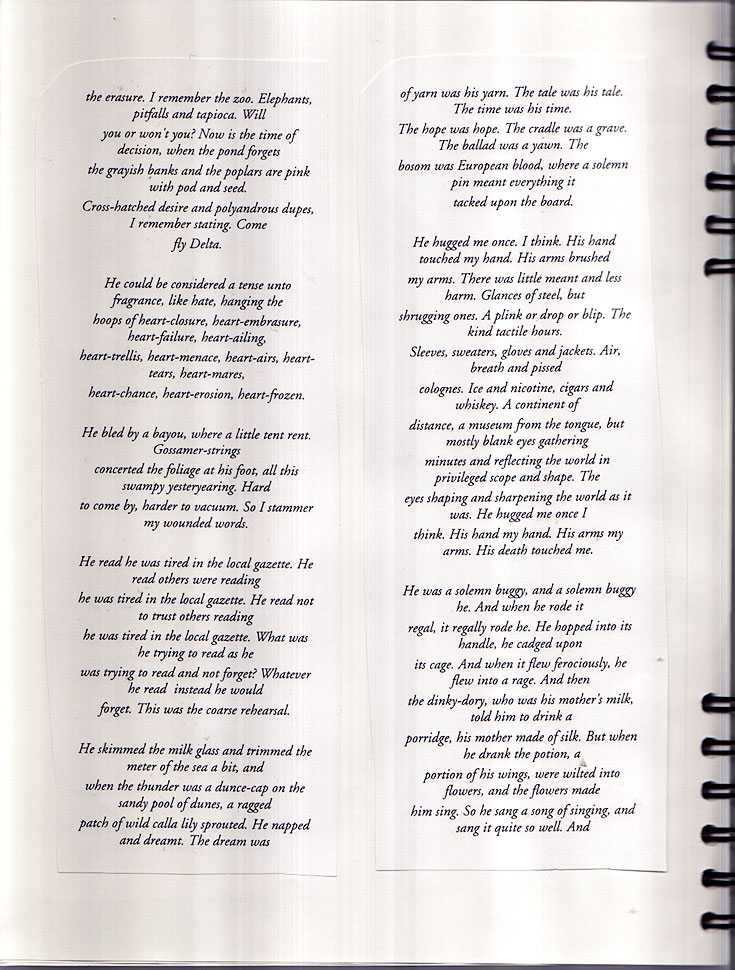 the erasure. I remember the zoo. Elephants,
pitfalls and tapioca. Will
you or won't you? Now is the time of
decision, when the pond forgets
the grayish banks and the poplars are pink
with pod and seed.
Cross-hatched desire and polyandrous dupes,
I remember stating. Come
fly Delta.
He could be considered a tense unto
fragrance, like hate, hanging the
hoops of heart-closure, heart-embrasure,
heart-failure, heart-ailing,
heart-trellis, heart-menace, heart-airs, heart-
tears, heart-mares,
heart-chance, heart-erosion, heart-frozen.
He bled by a bayou, where a little tent rent.
Gossamer-strings
concerted the foliage at his foot, all this
swampy yesteryearing. Hard
to come by, harder to vacuum. So I stammer
my wounded words.
He read he was tired in the local gazette. He
read others were reading
he was tired in the local gazette. He read not
to trust others reading
he was tired in the local gazette. What was
he trying to read as he
was trying to read and not forget? Whatever
he read instead he would
forget. This was the coarse rehearsal.
He skimmed the milk glass and trimmed the
meter of the sea a bit, and
when the thunder was a dunce-cap on the
sandy pool of dunes, a ragged
patch of wild calla lily sprouted. He napped
and dreamt. The dream was
of yarn was his yarn. The tale was his tale.
The time was his time.
The hope was hope. The cradle was a grave.
The ballad was a yawn. The
bosom was European blood, where a solemn
pin meant everything it
tacked upon the board.
He hugged me once. I think. His hand
touched my hand. His arms brushed
my arms. There was little meant and less
harm. Glances of steel, but
shrugging ones. A plink or drop or blip. The
kind tactile hours.
Sleeves, sweaters, gloves and jackets. Air,
breath and pissed
colognes. Ice and nicotine, cigars and
whiskey. A continent of
distance, a museum from the tongue, but
mostly blank eyes gathering
minutes and reflecting the world in
privileged scope and shape. The
eyes shaping and sharpening the world as it
was. He hugged me once I
think. His hand my hand. His arms my
arms. His death touched me.
He was a solemn buggy, and a solemn buggy
he. And when he rode it
regal, it regally rode he. He hopped into its
handle, he cadged upon
its cage. And when it flew ferociously, he
flew into a rage. And then
the dinky-dory, who was his mother's milk,
told him to drink a
porridge, his mother made of silk. But when
he drank the potion, a
portion of his wings, were wilted into
flowers, and the flowers made
him sing. So he sang a song of singing, and
sang it quite so well. And